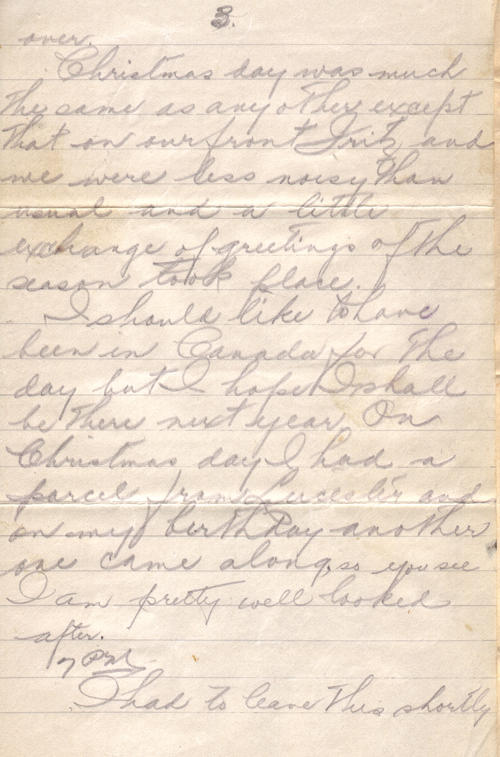 3.
over.
Christmas day was much
the same as any other except
that on our front Fritz and
me were less noisy than
usual and a little
exchange of greetings of the
season took place.
I should like to have
been in Canada for the
day but I hope I shall
be there next year. On
Christmas day I had a
parcel from Leicester and
on my birthday another
one came along, so you see
I am pretty well looked
after.
7 PM
I had to leave this shortly